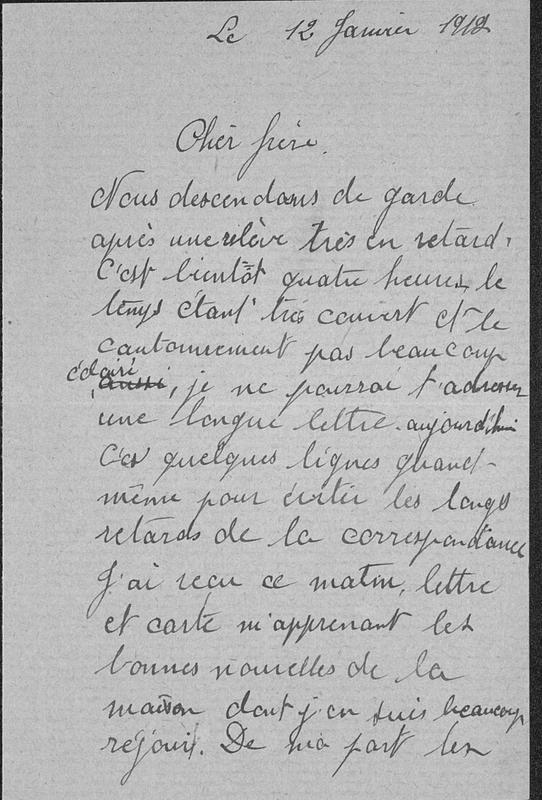 Le 12 Janvier 1918
Cher frère.
Nous descendons de garde
après une relève très en retard.
C'est bientôt quatre heures le
temps étant très couvert et le
cantonnement pas beaucoup
éclairé, je ne pourrai t'adresser
une longue lettre aujourd'hui
Ces quelques lignes quand-
même pour éviter les longs
retards de la correspondance
J'ai reçu ce matin, lettre
et carte m'apprenant les
bonnes nouvelles de la
maison dont j'en suis beaucoup
réjoui. De ma part les